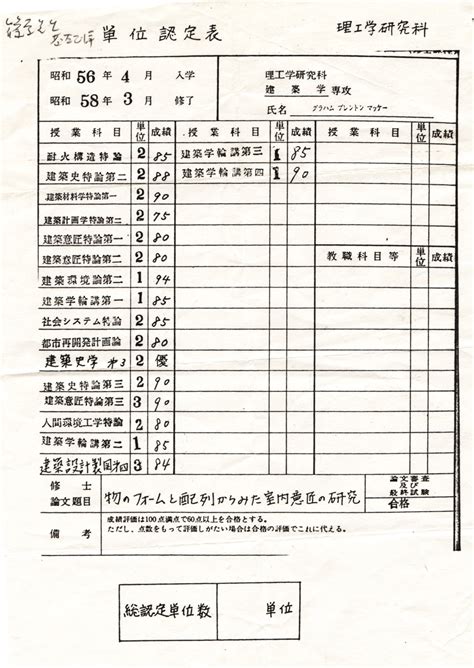 単位認定表
理工学研究科
昭和 56 年 4 月 入学
昭和 58 年 3 月 修了
理工学研究科
建築学専攻
氏名 グラハム ブレントン マッケー
授業科目 単位 成績 授業科目 単位 成績 授業科目 単位 成績
耐火構造特論 2 85 建築学輪講第三 1 85
建築史特論第二 2 88 建築学輪講第四 1 90
建築材料学特論第一 2 90
建築計画学特論第二 2 75
建築意匠特論第一 2 80
建築意匠特論第二 2 80 教職科目等 単位 成績
建築環境論第二 1 94
建築学輪講第一 1 85
社会システム特論 2 85
都市再開発計画論 2 80
建築史学 第3 2 優
建築史特論第三 2 90
建築意匠特論第三 3 90
人間環境工学特論 2 80
建築学輪講第二 1 85
建築設計製図第四 3 84
修士論文題目 物のフォームと配列からみた室内意匠の研究 論文審査及び最終試験 合格
備考 成績評価は100点満点で60点以上を合格とする。
ただし、点数をもって評価しがたい場合は合格の評価でこれに代える。
総認定単位数 単位